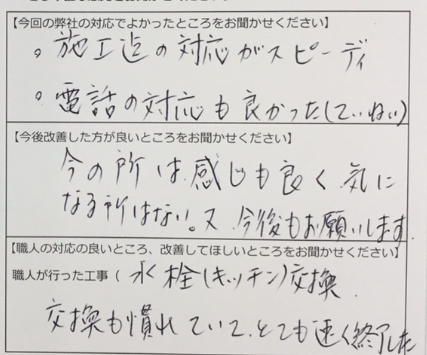 【今回の弊社の対応でよかったところをお聞かせください】
。施工迄の対応がスピーディ
。電話の対応も良かった(ていねい)
【今後改善した方が良いところをお聞かせください】
今の所は感じも良く気に
なる所はない。又 今後もお願いします
【職人の対応の良いところ、改善してほしいところをお聞かせください】
職人が行った工事（ 水栓(キッチン)交換
交換も慣れていて、とても速く終了した